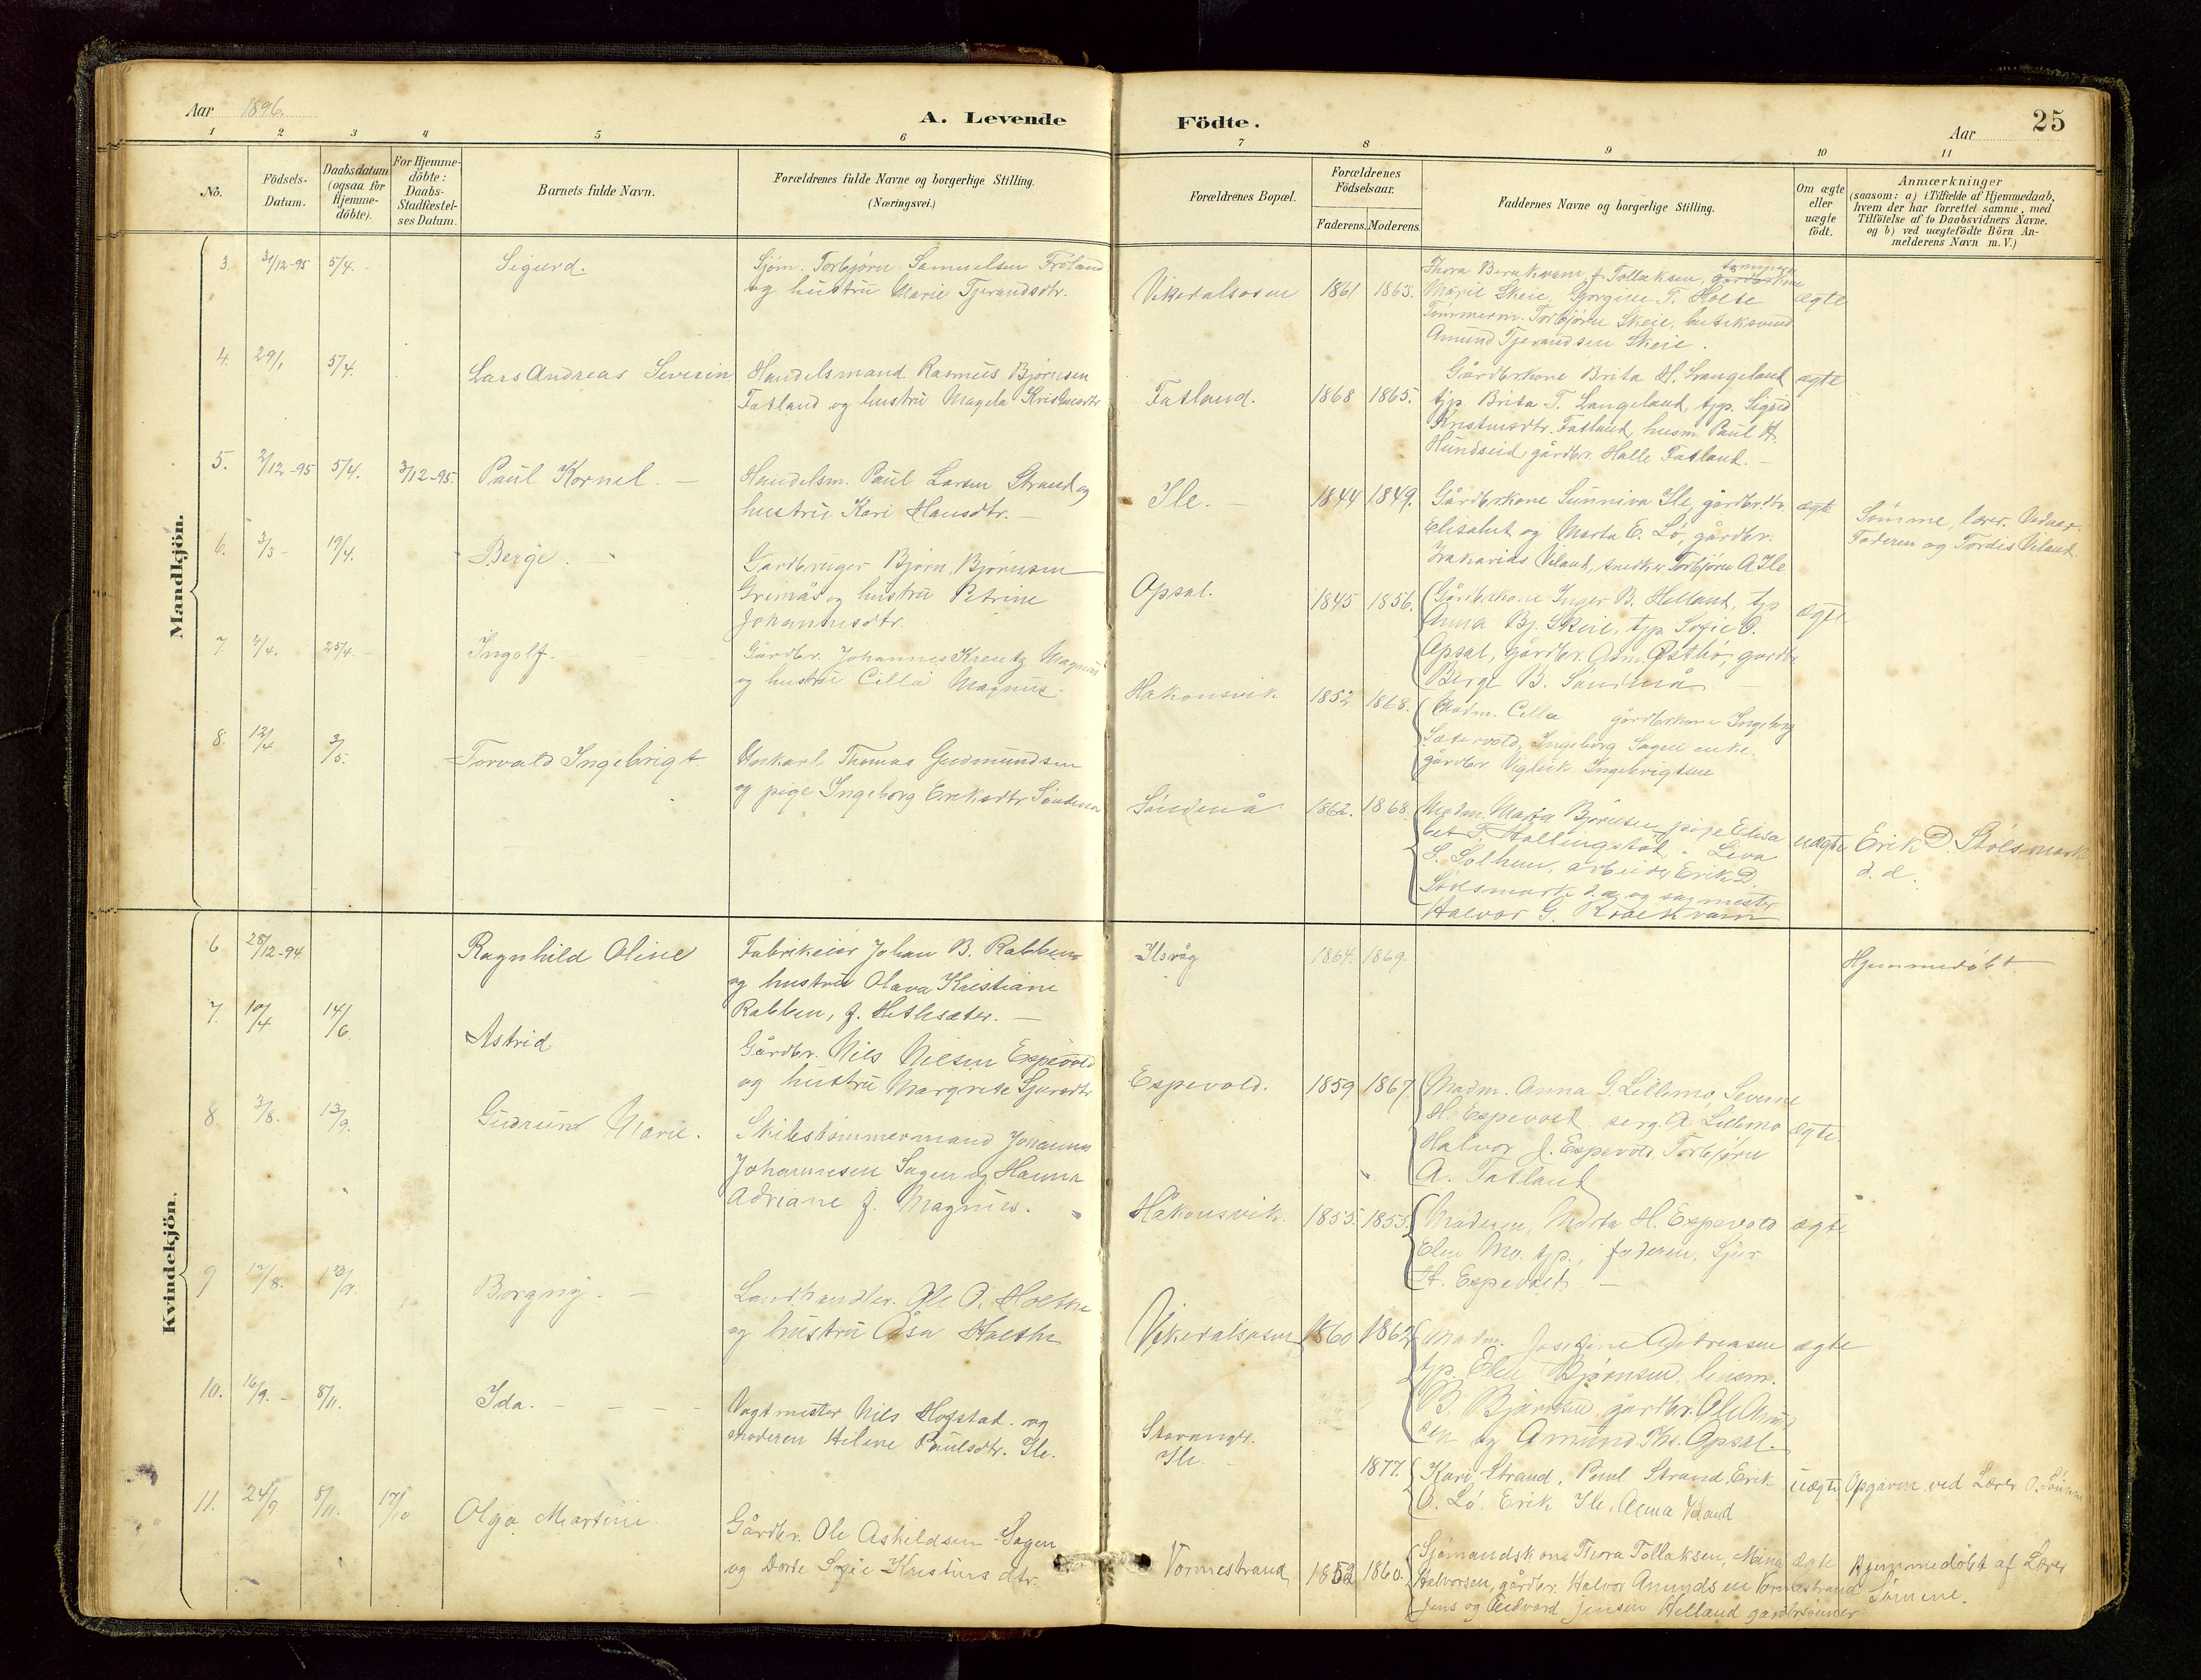 Aar 1896.
A. Levende Födte.
Aar
25
1 2 3 4 5 6 7 8 9 10 11
No.
Födsels-Datum.
Daabsdatum (ogsaa for Hjemme-döbte).
For Hjemme-döbte: Daabs-Stadfæstel-ses Datum.
Barnets fulde Navn.
Forældrenes fulde Navne og borgerlige Stilling.
(Næringsvei.)
Forældrenes Bopæl.
Forældrenes Födselsaar.
Faderens. Moderens.
Faddernes Navne og borgerlige Stilling.
Om ægte eller uægte födt.
Anmærkninger
(saasom: a) i Tilfælde af Hjemmedaab,
hvem der har forrettet samme, med
Tilföielse af to Daabsvidners Navne.
og b) ved uægtefödte Börn An-
melderens Navn m. V.)
Mandkjön.
3. 31/12-95 5/4. - Sigurd.
Sjöm. Torbjörn Samuelsen Fröland
og hustru Marie Tjerandsdtr.
Vikedalsosen 1861 1863.
Thora Bernkvam f. Tollaksen,
Marie Skeie, Gjorgine T. Holte
Tömmerm. Torbjörn Skeie, butiksvend
Amund Tjerandsen Skeie.
ægte
4. 29/1 5/4. Lars Andreas Severin
Handelsmand Rasmus Björnsen
Fatland og hustru Magela Kristensdtr
Fatland. 1868 1865.
Gårdbrkone Brita H. Langeland
tjp. Brita T. Langeland, tjp. Sigrid
Kristensdtr. Fatland, husm. Paul H.
Hundseid, gårdbr. Halle Fatland. -
ægte
5. 2/12-95 5/4. 3/12-95. Paul Kornel. -
Handelsm. Paul Larsen Strand og
hustru Kari Hansdtr. -
Ile. - 1844 1849.
Gårdbrkone Sunniva Ile, gårdbrdtr.
Elisabet og Marta E. Lö, gårdbr.
Zakarias Viland, snedker Torbjörn A Ile
ægte
Sömme, lærer. Vidner:
Faderen og Tordis Viland
6. 3/3 - 19/4. Berge. -
Gardbruger Björn Björnsen
Grimås og hustru Petrine
Johannesdtr.
Opsal. 1845 1856.
Gårdbrkone Inger B. Helland, tjp
Anna Bj. Skeie, tjp. Sofie O.
Opsal, gårdbr. Asm. Östbö, gardbr
Berge B.
ægte
7. 4/4. 25/4 - Ingolf. -
Gårdbr. Johannes Kreutz Magnus
og hustru Cilla Magnus.
Hakonsvik 1852 1868.
Madm. Cilla gårdbrkone Ingeborg
Sætervold, Ingeborg Sagen enke.
gårdbr. Vigleik Ingebrigtsen
8. 12/4 3/5. Torvald Ingebrigt.
Ungkarl Thomas Gudmundsen
og pige Ingeborg Eriksdtr Söndenå
Söndenå 1862. 1868.
Madm. Marta Björnsen pige Elisa
bet T. Hallingstad " Liva
S. Solheim, arbeider Erik D.
Stölsmark d. æ. og sagmester
Halvor G. Kvaleskvam
uægte Erik D. Stölsmark
d. æ.
Kvindekjön.
6 28/12-94 Ragnhild Oline
Fabrikeier Johan B. Rabben
og hustru Olava Kristiane
Rabben, f. Hetlesæter. -
Ilsvåg 1864. 1869.
Hjemmedöbt.
7. 10/4 14/6 Astrid
Gårdbr. Nils Nilsen Espevold
og hustru Margrete Sjursdtr
Espevold. 1859 1867.
Madm. Anna G. Lillemo, Severine
H. Espevold. serg. A. Lillemo
Halvor J. Espevold, Torbjörn
A. Fatland
ægte.
8. 3/8. 13/9. Gudrun Marie.
Skibstömmermand Johannes
Johannesen Sagen og Hanna
Adriane f. Magnus.
Håkonsvik. 1855. 1855.
Moderen, Marta H. Espevold
Elen Mo. tjp., faderen, Sjur
H. Espevold. -
ægte
9 12/8. 13/9. Borgny. -
Landhandler. Ole O. Holthe
og hustru Åsa Holthe
Vikedalsosen 1860 1862
Madm. Josefine Andreasen
tjp. Elen Björnsen, husm.
B. Björnsen, gårdbr. Ole Amund
sen og Amund Ths. Opsal.
ægte
10. 16/9. - 8/11. Ida. -
Vagtmester Nils Hogstad. og
Moderen Helene Paulsdtr. Ile.
Stavanger.
Ile. - 1877.
Kari Strand, Paul Strand, Erik
O. Lö. Erik Ile, Anna Viland
uægte Opgaven ved Lærer O. Sömme
11. 24/9. 8/11. 17/10 Olga Martine.
Gårdbr. Ole Askildsen Sagen
og Dorte Sofie Kristensdtr.
Vormestrand 1852 1860.
Sjömandskone Thora Tollaksen, Mina
Halvorsen, gårdbr. Halvor Amundsen Vormestrand
Jens og Edvard Jensen Helland gardbrsönner
ægte Hjemmedöbt af Lærer
Sömme.